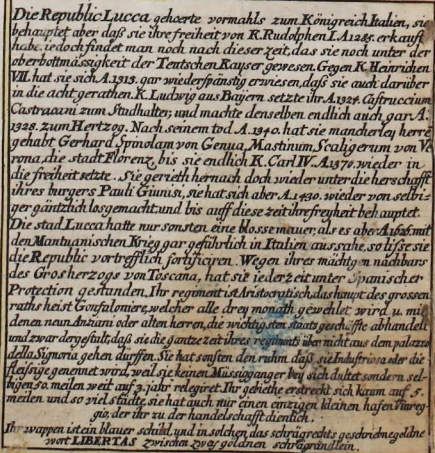 Die Republic Lucca gehoerte vormahls zum Königreich Italien, sie
behauptet aber daß sie ihre freiheit von K. Rudolphen I. A. 1285. erkauft
habe, iedoch findet man noch nach dieser zeit, das sie noch unter der
oberbottmässigkeit der Teutschen Kayser gewesen. Gegen K. Heinrichen
VII. hat sie sich A. 1313. gar wiederspänstig erwiesen, daß sie auch darüber
in die acht gerathen. K. Ludwig aus Bayern setzte ihr A. 1324. Castruccium
Castracani zum Stadhalter, und machte denselben endlich auch gar A.
1328. zum Hertzog. Nach seinem tod A. 1340. hat sie mancherley herrē
gehabt Gerhard Spinolam von Genua, Mastinum Scaligerum von Ve
rona, die stadt Florenz, bis sie endlich K. Carl IV. A. 1370. wieder in
die freiheit setzte. Sie gerieth hernach doch wieder unter die herschafft
ihres burgers Pauli Giunisi, sie hat sich aber A. 1430. wieder von selbi-
ger gäntzlich losgemacht, und bis auff diese zeit ihre freyheit behauptet.
Die stad Lucca hatte nur sonsten eine blosse mauer, als es aber A. 1626. mit
den Mantuanischen Krieg gar gefährlich in Italien aussahe, so liße sie
die Republic vortrefflich fortificiren. Wegen ihres mächtigen nachbars
des Grosherzogs von Toscana, hat sie iederzeit unter Spanischer
Protection gestanden. Ihr regiment ist Aristocratisch, das haupt des grossen
raths heist Gonfaloniere, welcher alle drey monath gewehlt wird u. mit
denen neun Anziani oder alten herren, die wichtigsten staats geschäffte abhandelt
und zwar dergestalt, daß sie die gantze zeit ihres regiments über nicht aus dem palazzo
della Signoria gehen durffen. Sie hat sonsten den ruhm daß sie Industriosa oder die
fleißige genennet wird, weil sie keinen Müssiggänger bey sich dultet sondern sel-
bigen 50. meilen weit auf 3. jahr relegiret. Ihr gebiethe erstreckt sich kaum auf 5.
meilen und so viel städte, sie hat auch nur einen einzigen kleinen hafen Viareg-
gio, der ihr zu der handelschafft dienlich.
Ihr wappen ist ein blauer schild, und in solchen das schrägrechts geschriebne goldne
wort LIBERTAS zwischen zwey goldnen schrägrändlein.